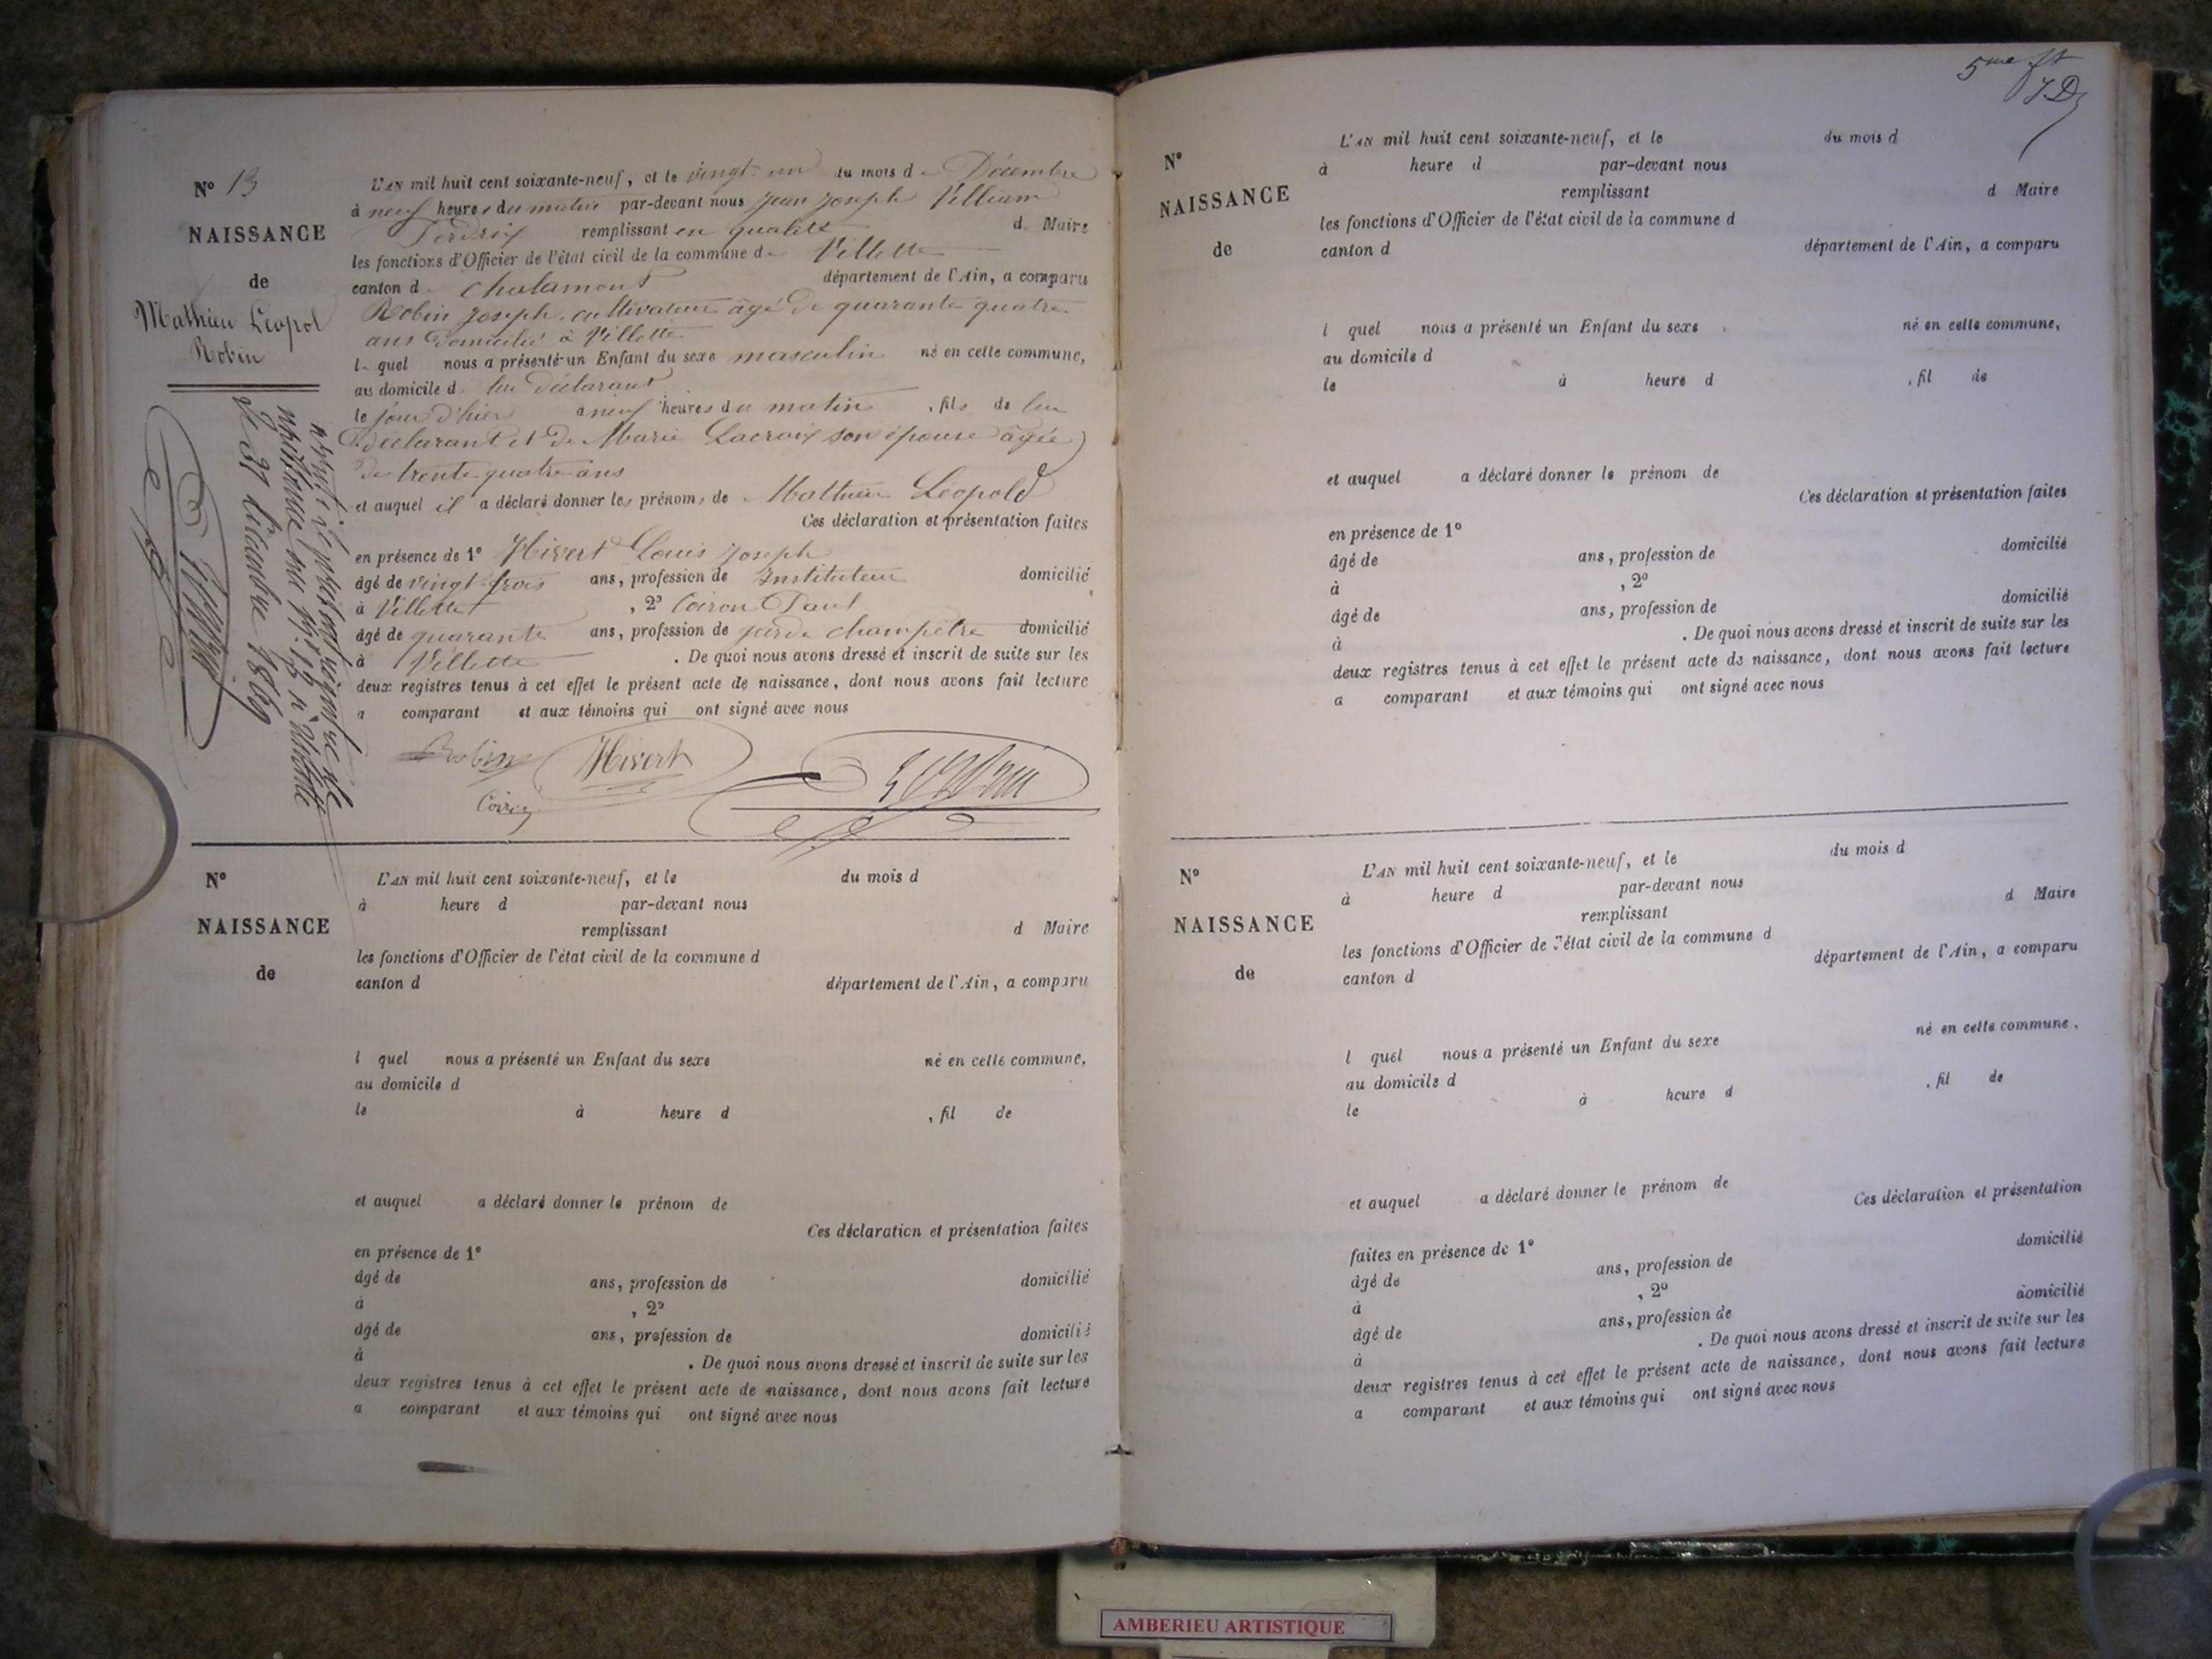 N° 13
NAISSANCE
de
Mathieu Léopol
Robin
L'AN mil huit cent soixante-neuf, et le vingt-un du mois d Décembre
à neuf heures du matin par-devant nous Jean Joseph Villiam
Perdrix remplissant en qualité d Maire
les fonctions d'Officier de l'état civil de la commune d Villette
canton d Chalamont département de l'Ain, a comparu
Robin Joseph, cultivateur âgé de quarante quatre
ans domicilié à Villette
le quel nous a présenté un Enfant du sexe masculin né en cette commune,
au domicile d lui déclarant
le jour d'hier à neuf heures du matin , fils de lui
déclarant et de Marie Lacroix son épouse âgée
de trente quatre ans
et auquel il a déclaré donner les prénoms de Mathieu Léopold
Ces déclaration et présentation faites
en présence de 1° Hivert Louis Joseph
âgé de vingt-trois ans, profession de Instituteur domicilié
à Villette , 2° Coiron Paul
âgé de quarante ans, profession de garde champêtre domicilié
à Villette . De quoi nous avons dressé et inscrit de suite sur les
deux registres tenus à cet effet le présent acte de naissance, dont nous avons fait lecture
a comparant et aux témoins qui ont signé avec nous
Robin Hivert
Coiron
le 31 décembre 1869
N°
NAISSANCE
de
L'AN mil huit cent soixante-neuf, et le du mois d
à heure d par-devant nous
remplissant d Maire
les fonctions d'Officier de l'état civil de la commune d
canton d département de l'Ain, a comparu
l quel nous a présenté un Enfant du sexe né en cette commune,
au domicile d
le à heure d , fil de
et auquel a déclaré donner le prénom de
Ces déclaration et présentation faites
en présence de 1°
âgé de ans, profession de domicilié
à , 2°
âgé de ans, profession de domicilié
à . De quoi nous avons dressé et inscrit de suite sur les
deux registres tenus à cet effet le présent acte de naissance, dont nous avons fait lecture
a comparant et aux témoins qui ont signé avec nous
5me ft
N°
NAISSANCE
de
L'AN mil huit cent soixante-neuf, et le du mois d
à heure d par-devant nous
remplissant d Maire
les fonctions d'Officier de l'état civil de la commune d
canton d département de l'Ain, a comparu
l quel nous a présenté un Enfant du sexe né en cette commune,
au domicile d
le à heure d , fil de
et auquel a déclaré donner le prénom de
Ces déclaration et présentation faites
en présence de 1°
âgé de ans, profession de domicilié
à , 2°
âgé de ans, profession de domicilié
à . De quoi nous avons dressé et inscrit de suite sur les
deux registres tenus à cet effet le présent acte de naissance, dont nous avons fait lecture
a comparant et aux témoins qui ont signé avec nous
N°
NAISSANCE
de
L'AN mil huit cent soixante-neuf, et le du mois d
à heure d par-devant nous
remplissant d Maire
les fonctions d'Officier de l'état civil de la commune d
canton d département de l'Ain, a comparu
l quel nous a présenté un Enfant du sexe né en cette commune,
au domicile d
le à heure d , fil de
et auquel a déclaré donner le prénom de
Ces déclaration et présentation
faites en présence de 1° domicilié
âgé de ans, profession de
à , 2° domicilié
âgé de ans, profession de
à . De quoi nous avons dressé et inscrit de suite sur les
deux registres tenus à cet effet le présent acte de naissance, dont nous avons fait lecture
a comparant et aux témoins qui ont signé avec nous
AMBERIEU ARTISTIQUE